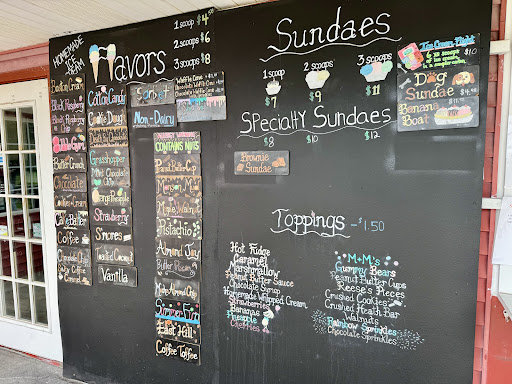 HOMEMADE
ICE
CREAM
Flavors
1 scoop $4.50
2 scoops $6
3 scoops $8
Boston Cream
Black Raspberry
Butter Crunch
Chocolate
Cake Batter
Coffee
Chocolate Chip
Cotton Candy
Cookie Dough
Grasshopper
Mint Chocolate Chip
Orange Pineapple
Strawberry
S'mores
Toasted Coconut
Vanilla
Sorbet
Non-Dairy
CONTAINS NUTS
Peanut Butter Cup
Maple Walnut
Pistachio
Almond Joy
Butter Pecan
Mocha Almond Chip
East Hill
Coffee Toffee
Sundaes
1 scoop
2 scoops
3 scoops
$7
$9
$11
Specialty Sundaes
$8
$10
$12
Brownie
Sundae
Ice Cream Flight $10
Dog
Sundae
Banana
Boat
Toppings - $1.50
Hot Fudge
Caramel
Marshmallow
Peanut Butter Sauce
Chocolate Syrup
Homemade Whipped Cream
Strawberries
Bananas
Pineapple
Cherries
M+M's
Gummy Bears
Peanut Butter Cups
Reese's Pieces
Crushed Cookies
Crushed Heath Bar
Walnuts
Rainbow Sprinkles
Chocolate Sprinkles